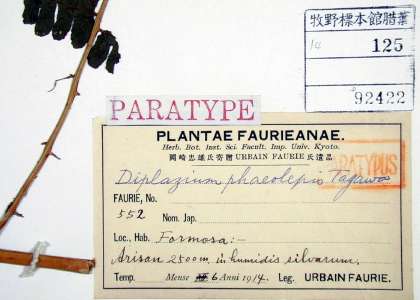 牧野標本館腊葉
125
92422
PARATYPE
PLANTAE FAURIEANAE.
Herb. Bot. Inst. Sci. Facult. Imp. Univ. Kyoto.
岡崎忠雄氏寄贈 URBAIN FAURIE 氏遺品
Diplazium phaeolepis Tagawa
PARATYPUS
FAURIE, No.
552 Nom. Jap.
Loc., Hab. Formosa:—
Arisan 2500m, in humidis silvarum.
Temp. Mense 6 Anni 1914. Leg. URBAIN FAURIE.